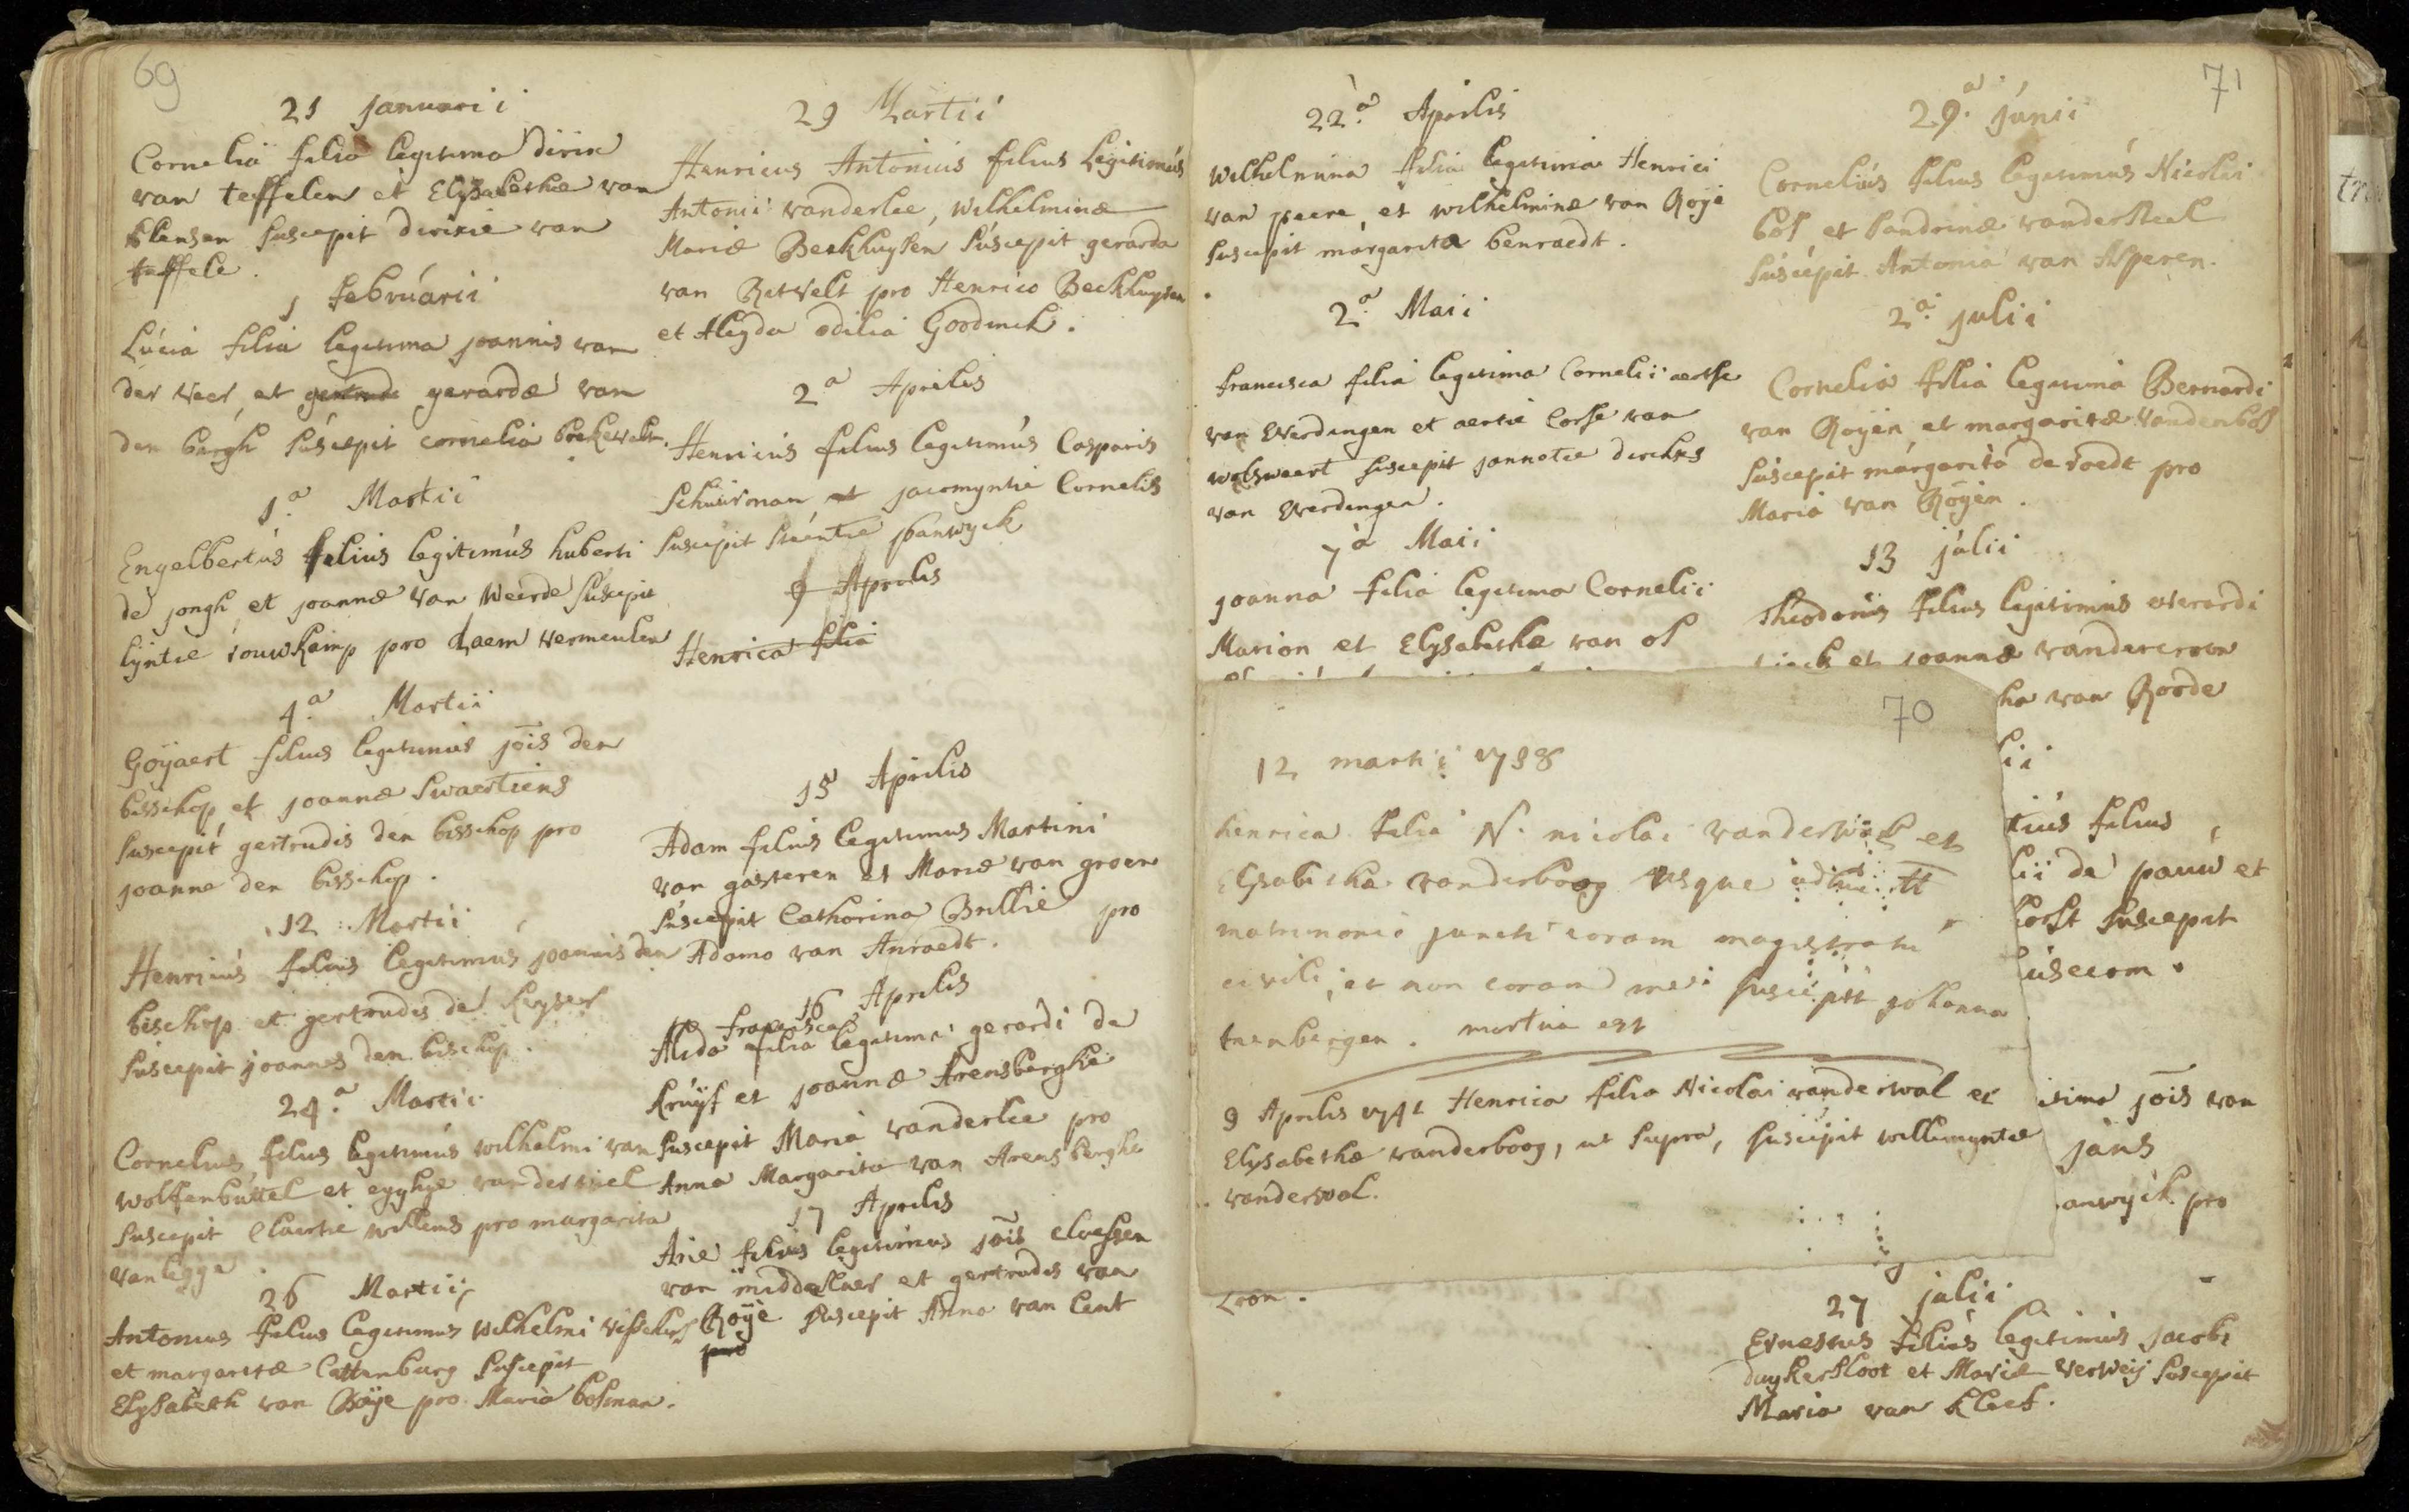 69
21 januarii
Cornelia filia legitima dirix
van teffelen et Elysabethæ van
suscepit dirixie van
teffele.
1 februarii
Lucia filia legitima joannis van
der Neer, et gerardæ van
den bergh suscepit cornelia
1.a Martii
Engelbertus filius legitimus huberti
de jongh et joannæ van Weerde suscepit
lijntie rouwkamp pro Vermeulen
4.a Martii
Goyaert filius legitimus jois den
bisschop et joannæ Swaertiens
suscepit gertrudis den bisschop pro
joanna den bisschop.
12 Martii
Henricus filius legitimus joannis den
bischop et gertrudis de keyser
suscepit joannes den bischop.
24.a Martii
Cornelius filius legitimus wilhelmi van
wolfenbuttel et eyghye
suscepit willems pro margarita
van legge
26 Martii
Antonius filius legitimus wilhelmi visschers
et margaritæ Cattenburg suscepit
Elysabeth van Roye pro Maria bosman.
29 Martii
Henricus Antonius filius legitimus
Antonii vanderlee, Wilhelminæ
Mariæ Beekhuysen suscepit gerarda
van pro Henrico Beekhuysen
et Aleyda odilia
2a Aprilis
Henricus filius legitimus Casparis
Schuurman et jacomyntie Cornelis
suscepit
9 Aprilis
Henrica filia
15 Aprilis
Adam filius legitimus Martini
van gasteren et Mariæ van groen
suscepit Catharina Brillie pro
Adamo van Anraedt.
16 Aprilis
francisca
Alida filia legitima gerardi de
kruyf et joannæ Arensberghe
suscepit Maria vanderlee pro
Anna Margarita van Arensberghe
17 Aprilis
Arie filius legitimus jois claessen
van middelaer et gertrudis van
Roye suscepit Anna van Cent
pro
22.a Aprilis
Wilhelmina filia legitima Henrici
van peere, et wilhelminæ van Roye
suscepit margarita benraedt.
2.a Maii
francisca filia legitima Cornelii aertse
van Everdingen et aertie Corse van
suscepit jannetie dircks
van Everdingen.
7a Maii
joanna filia legitima Cornelii
Marion et Elysabethæ van os
70
12 martii 1738
henrica filia N. nicolai vanderwal et
Elysabethæ vanderboog usque adhuc
matrimonio juncti coram magistratu
civili, et non coram me: suscepit johanna
tnenbergen. mortua est
9 Aprilis 1741 Henrica filia Nicolai vanderwal et
Elysabethæ vanderboog, ut supra, suscepit willemyntie
vanderwal.
Loon.
71
29.a junii
Cornelius filius legitimus Nicolai
bos et Sandrinæ vandersteel
suscepit Antonia van Asperen.
2.a julii
Cornelia filia legitima Bernardi
van Royen, et margaritæ vandenbos
suscepit margarita de roedt pro
Maria van Royen.
13 julii
Theodorus filius legitimus everardi
et joannæ vandercroon
ha van Roode
lii
tius filius
lii de pauw et
horst suscepit
itima jois van
jans
anwyck pro
27 julii
Ernestus filius legitimus jacobi
duykersloot et Mariæ Verweij suscepit
Maria van Kleef.